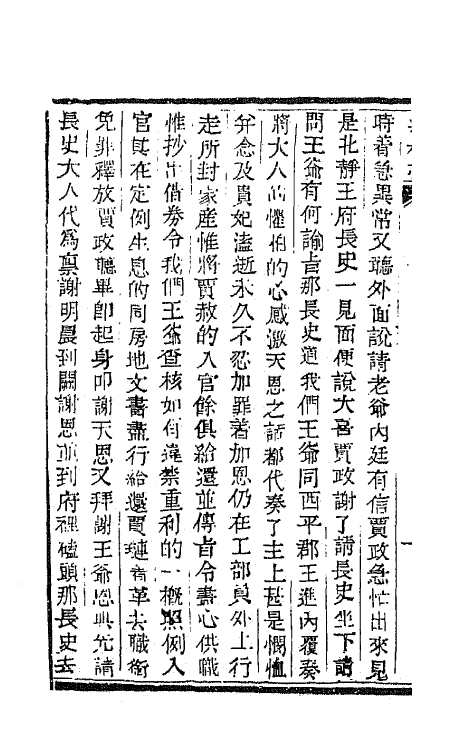 時着急異常又聽外面說請老爺內廷有信賈政急忙出來見
是北靜王府長史一見面便說大喜賈政謝了請長史坐下請
問王爺有何諭旨那長史道我們王爺同西平郡王進內覆奏
將大人的懼怕的心感激天恩之話都代奏了主上甚是憫恤
並念及貴妃溘逝未久不忍加罪着加恩仍在工部員外上行
走所封家產惟將賈赦的入官餘俱給還並傳旨令盡心供職
惟抄出借券令我們王爺查核如有違禁重利的一概照例入
官其在定例生息的同房地文書盡行給還賈璉着革去職銜
免罪釋放賈政聽畢卽起身叩謝天恩又拜謝王爺恩典先請
長史大人代爲禀謝明晨到闕謝恩並到府裡磕頭那長史去